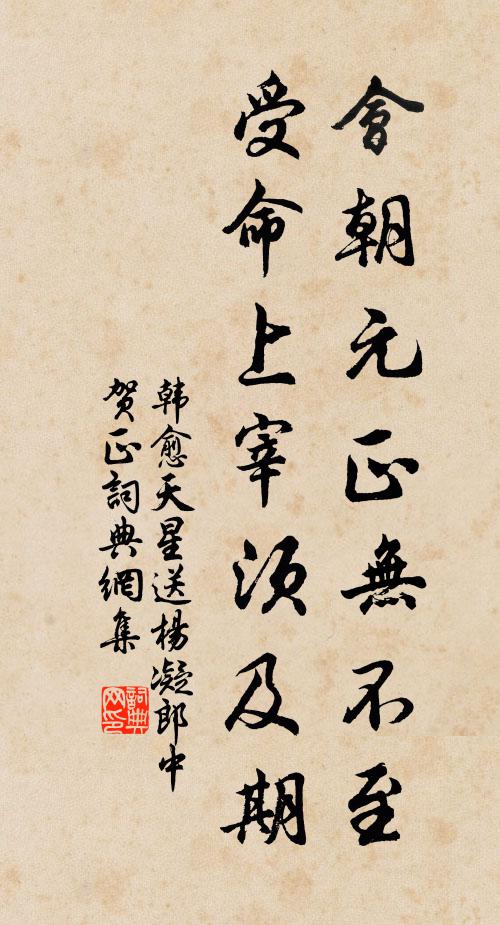 會朝元正無不至
受命上宰須及期
韩愈天星送楊凝郎中
贺正詞典網集
詞典
网印